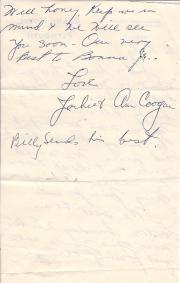 Well honey Keep us in
mind & we will see
you soon - Our very
Best to Donna Jr..
Love
Jackie & Ann Coogan
Billy Sends his best.